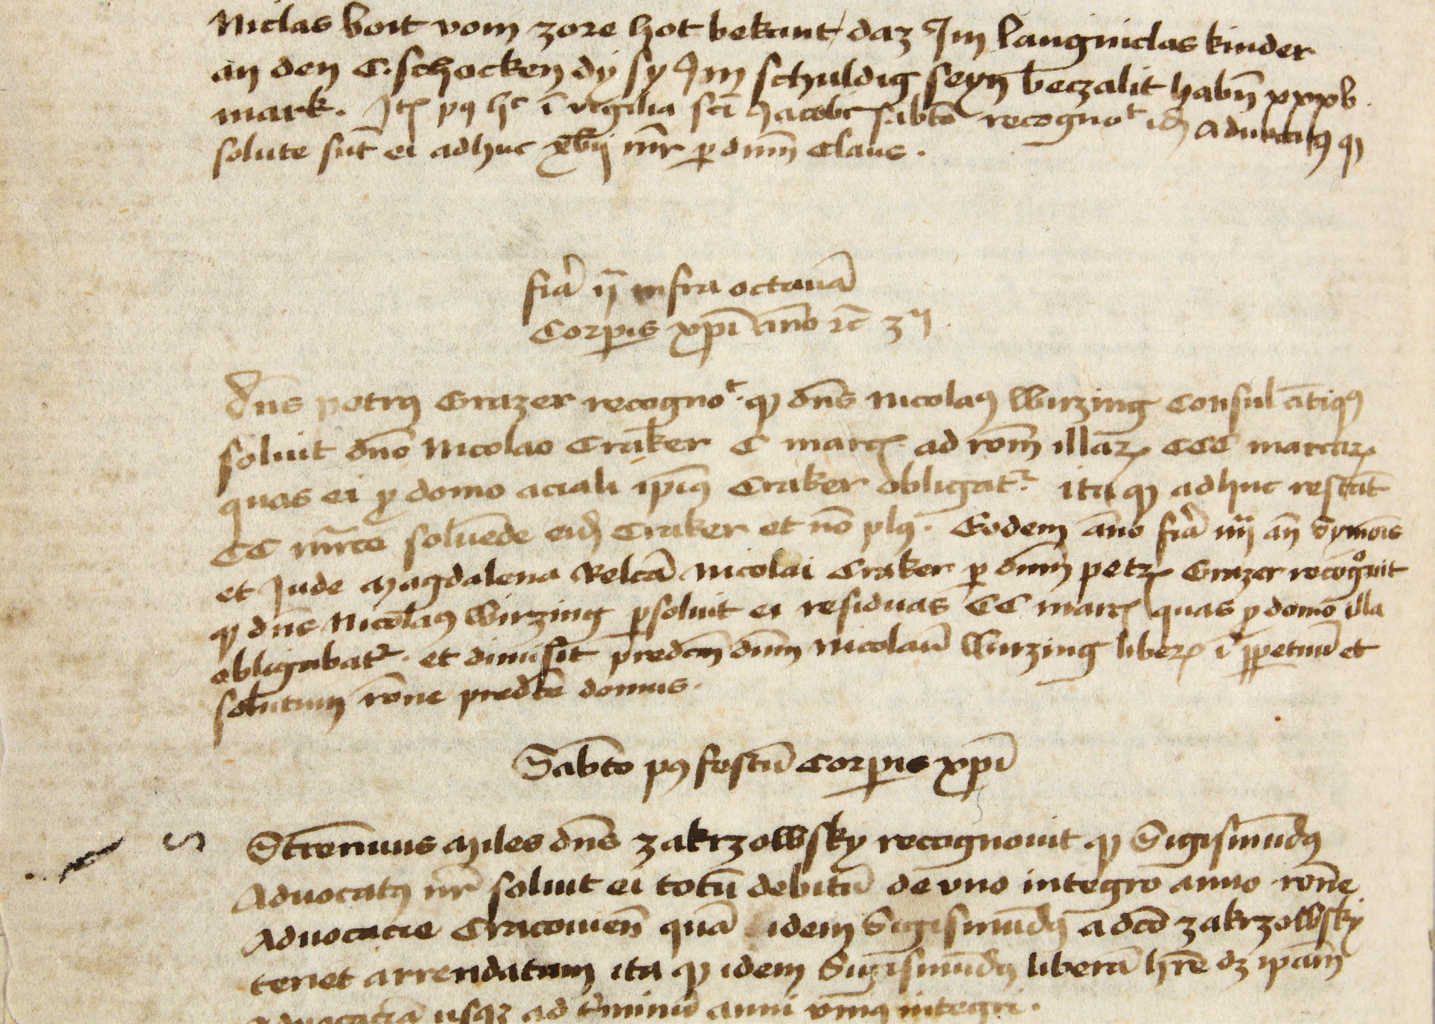 Niclas Voit vom Zore hot bekant daz Im langniclas kinder
an den C. schocken dy sy Im schuldig seyn beczalit habn̄ xxxv
mark. Itꝫ pꝰ hͨ ī vigilia sc̄i Jacobi sabb̄to recognoᵗ id̄ Aduocatꝰ ꝙ
solute sūt ei adhuc xvij mr̄ ꝑ dnm̄ Claus.
fīa ij infra octauā
Corpīs xp̄i anno ꝛc̄ 3ij
Dn̄s petrꝰ Grazer recognoᵗ. ꝙ dn̄s Nicolaꝰ Wirzing Consul ātiqꝰ
soluit dn̄o Nicolao Craker C marcꝭ ad rōm illaꝝ CCC marcaꝝ
quas ei ꝓ domo aciali ip̄iꝰ Craker obligatʳ. ita ꝙ adhuc restāt
CC mr̄ce soluēde eid̄ Craker et nō plꝰ. Eodem āno fīa iiij an̄ Symōis
et Jude Magdalena Relc̄a Nicolai Craker ꝑ dnm̄ petꝝ Grazer recogᵒuit
ꝙ dn̄s Nicolaꝰ Wirzing ꝑsoluit ei residuas CC marcꝭ quas ꝓ domo illa
obligabatʳ. et dimisit predc̄m dnm̄ Nicolaū Wirzing liberꝝ ī ꝑpetuū et
solutum rōne predc̄e domus.
Sabb̄to pꝰ festū Corpīs xp̄i
Strennuus Miles dn̄s Zakrzowsky recognouit ꝙ Sigismūdꝰ
Aduocatꝰ nr̄ soluit ei totū debitū de vno integro anno rōne
Aduocacie Cracouien̄ quā idem Sigismūdꝰ a dc̄o Zakrzowsky
tenet arrendatam ita ꝙ idem Sigismūdꝰ liberā hr̄e dꝫ ip̄am
Aduocaciā usqꝫ ad t̄minū anni vniꝰ integri.